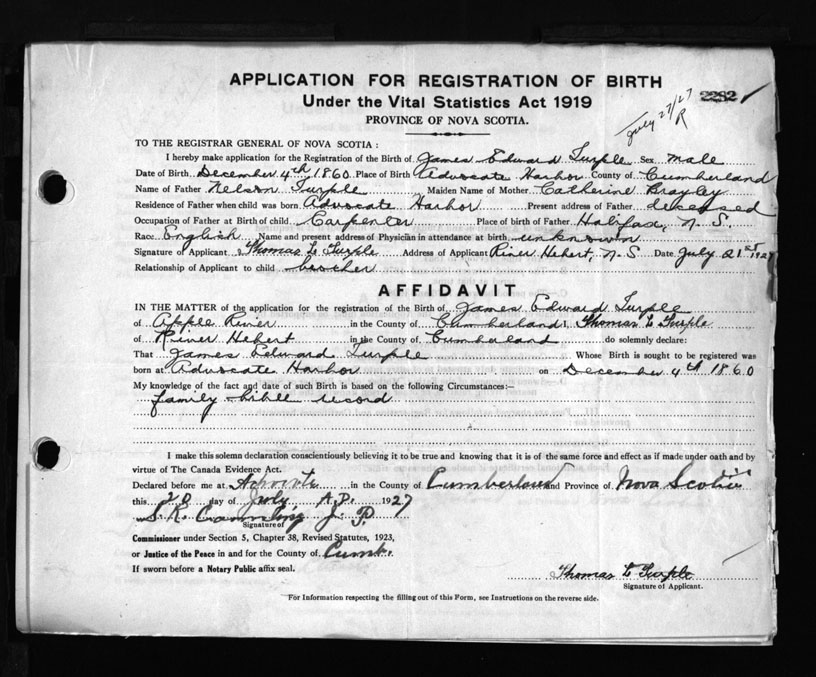 APPLICATION FOR REGISTRATION OF BIRTH
Under the Vital Statistics Act 1919
PROVINCE OF NOVA SCOTIA.
2282
July 27/27
R
TO THE REGISTRAR GENERAL OF NOVA SCOTIA:
I hereby make application for the Registration of the Birth of James Edward Turple Sex male
Date of Birth December 4th 1860 Place of Birth Advocate Harbor County of Cumberland
Name of Father Nelson Turple Maiden Name of Mother Catherine Brayley
Residence of Father when child was born Advocate Harbor Present address of Father deceased
Occupation of Father at Birth of child Carpenter Place of birth of Father Halifax, N.S.
Race English Name and present address of Physician in attendance at birth unknown
Signature of Applicant Thomas L Turple Address of Applicant River Hebert, N S Date July 21st 1927
Relationship of Applicant to child brother
AFFIDAVIT
IN THE MATTER of the application for the registration of the Birth of James Edward Turple
of Apple River in the County of Cumberland I, Thomas L Turple
of River Hebert in the County of Cumberland do solemnly declare:
That James Edward Turple Whose Birth is sought to be registered was
born at Advocate Harbor on December 4th 1860
My knowledge of the fact and date of such Birth is based on the following Circumstances:—
family bible record
I make this solemn declaration conscientiously believing it to be true and knowing that it is of the same force and effect as if made under oath and by
virtue of The Canada Evidence Act.
Declared before me at in the County of Cumberland and Province of Nova Scotia
this day of July A.D. 1927
S.R. J. P.
Signature of
Commissioner under Section 5, Chapter 38, Revised Statutes, 1923,
or Justice of the Peace in and for the County of Cumb.
If sworn before a Notary Public affix seal.
Thomas L Turple
Signature of Applicant.
For Information respecting the filling out of this Form, see Instructions on the reverse side.